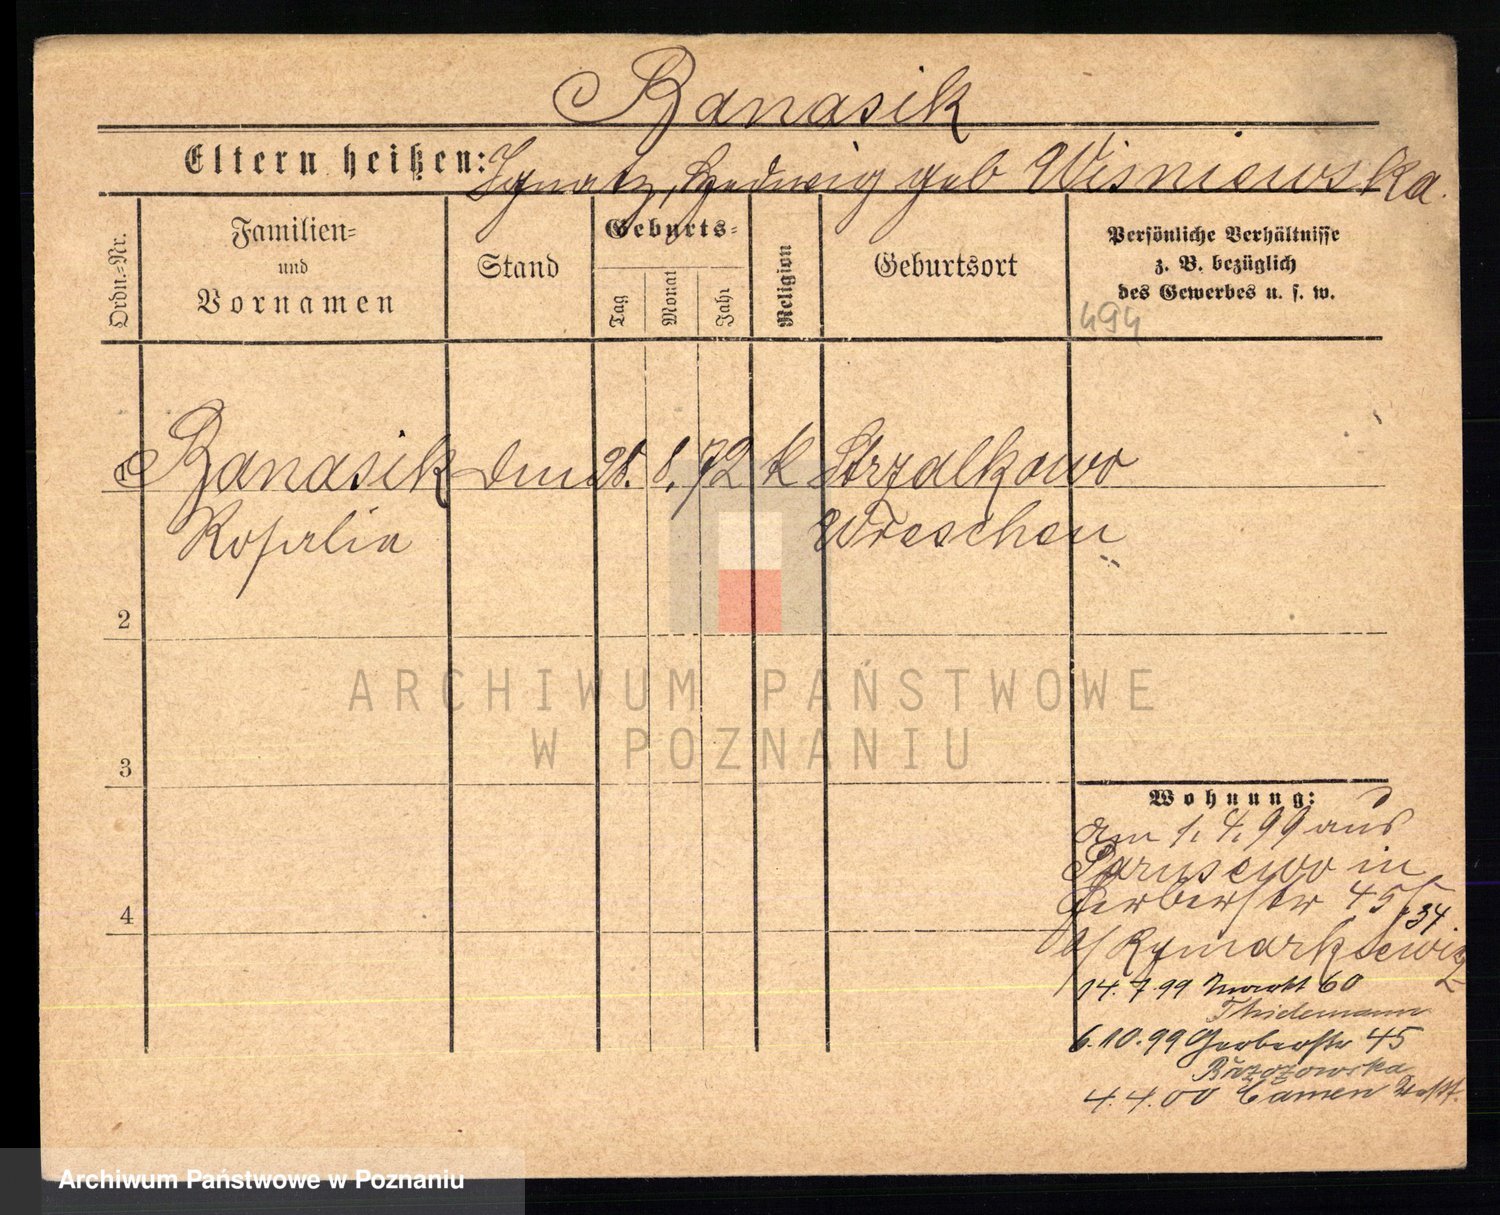 Banasik
Eltern heißen: Ignatz, Hedwig geb Wisniewska.
Ordn.=Nr.
Familien=
und
Vornamen
Stand
Geburts=
Tag
Monat
Jahr
Religion
Geburtsort
Persönliche Verhältnisse
z. B. bezüglich
des Gewerbes u. s. w.
494
1 Banasik 28. 8. 72 k Strzalkowo
Rosalia Wreschen
2
3
4
Wohnung:
am 1. 4. 99 aus
Parusewo in
Gerberstr 45
34
b/ Rymarkiewicz
14. 7. 99 Markt 60
Thidemann
6. 10. 99 Gerberstr 45
Brzozowska
4. 4. 00 Camen
ARCHIWUM PAŃSTWOWE
W POZNANIU
Archiwum Państwowe w Poznaniu